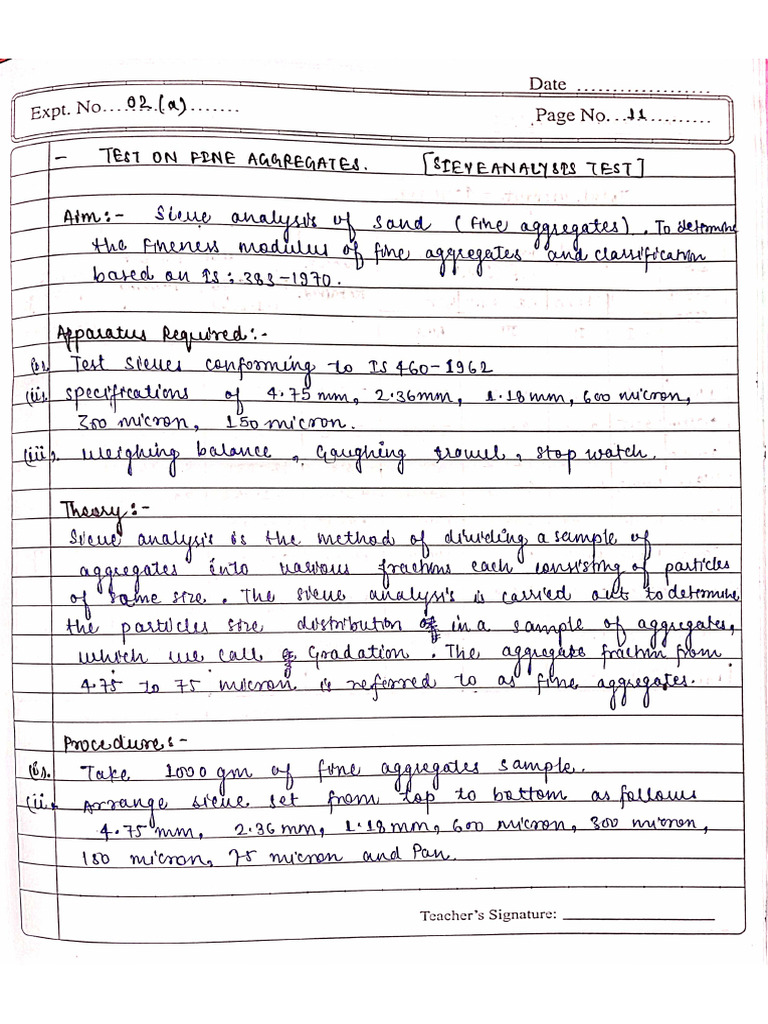 Date ...................
Expt. No......02(a).......
Page No...11..........
- TEST ON FINE AGGREGATES. [SIEVEANALYSIS TEST]
Aim:- Sieve analysis of sand (fine aggregates). To determine
the fineness modulus of fine aggregates and classification
based on IS: 383-1970.
Apparatus Required:-
(i). Test sieves conforming to IS 460-1962
(ii). specifications of 4.75 mm, 2.36mm, 1.18 mm, 600 micron,
300 micron, 150 micron.
(iii). Weighing balance, Gaughing trowel, stop watch.
Theory:-
Sieve analysis is the method of dividing a sample of
aggregates into various fractions each consisting of particles
of same size. The sieve analysis is carried out to determine
the particles size distribution in a sample of aggregates,
which we call Gradation. The aggregate fraction from
4.75 to 75 micron is referred to as fine aggregates.
Procedure:-
(i). Take 1000 gm of fine aggregates sample.
(ii). Arrange sieve set from top to bottom as follows
4.75 mm, 2.36 mm, 1.18 mm, 600 micron, 300 micron,
150 micron, 75 micron and Pan.
Teacher's Signature: ____________________